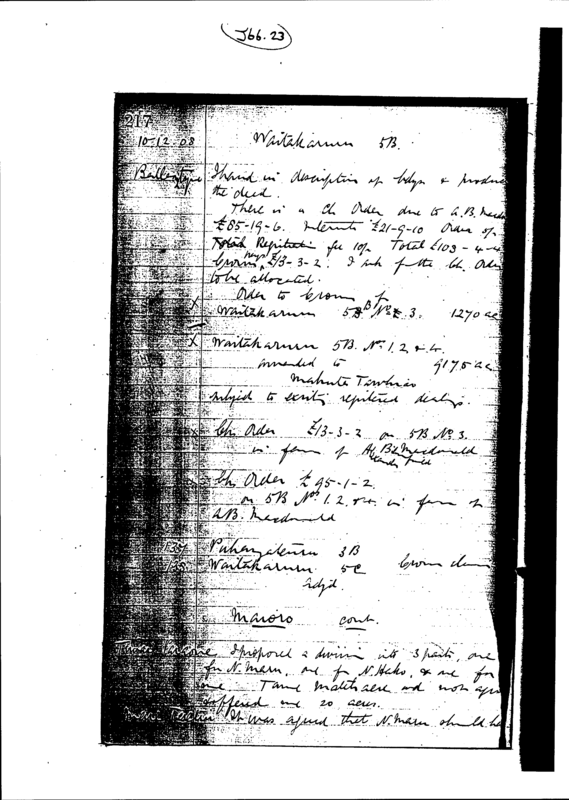 J66.23
217
10.12.08 Waitakaruru 5B.
Ballantyne I hand in description of bdys & produce
the deed.
There is a Ch Order due to A.B. Macdo
£85-19-6. Interest £21-9-10 Order of
Registration fee 10/- Total £108-4-
Crown £13-3-2. I ask for the Ch. Order
to be allocated.
X Order to Crown for
Waitakaruru 5B No. 3. 1270 ac
X Waitakaruru 5B. No. 1. 2. & 4.
amended to 9175 ac
Mahuta Tawhiao
subject to existing registered dealings.
X Ch. Order £13-3-2 on 5B No. 3.
in favor of A. B. Macdonald
Ch. Order £95-1-2.
on 5B Nos 1. 2. & 4. in favor of
A.B. Macdonald
Puhangateuru 3B
Waitakaruru 5C Crown claim
Adjd.
Maroro cont.
I proposed a division into 3 parts, one
for N. Maru, one for N. Hako, & one for
me. Tame and not agre
offered me 20 acres.
It was agreed that N. Maru should be